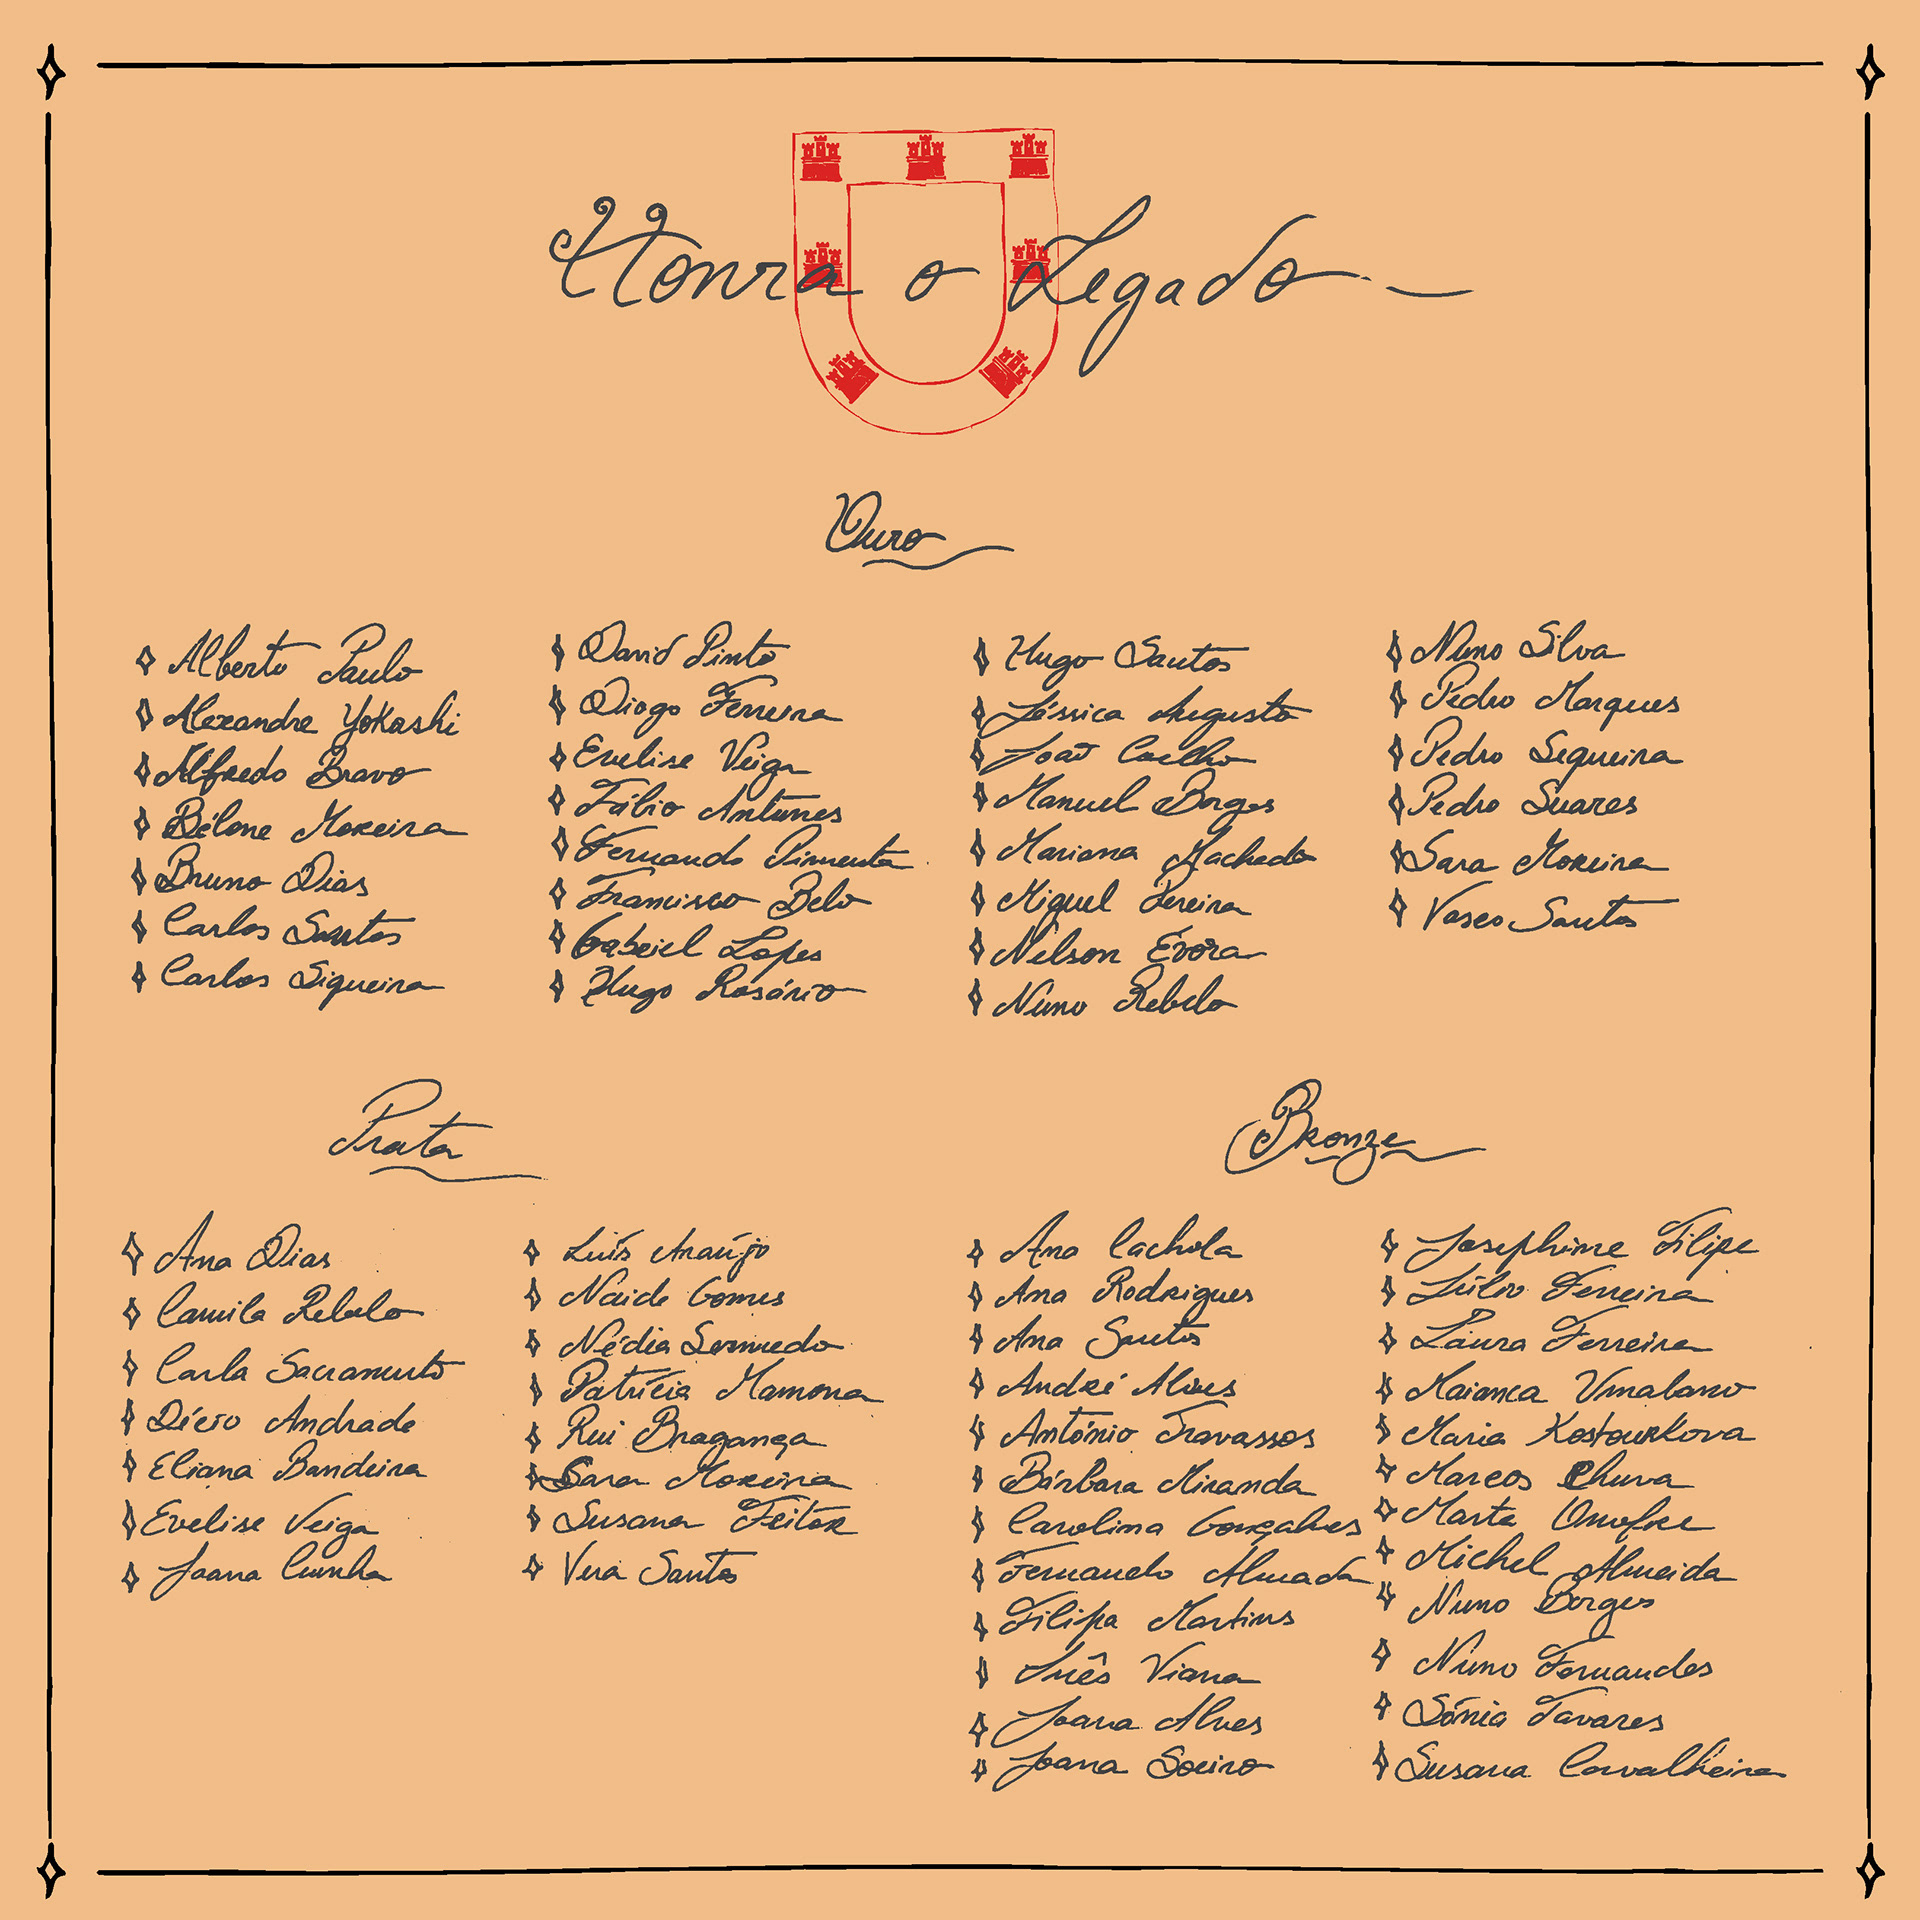 Honra o Legado
Ouro
Alberto Paulo
Alexandre Yokoshi
Alfredo Bravo
Bélone Moreira
Bruno Dias
Carlos Santos
Carlos Siqueira
David Pinto
Diogo Ferreira
Evelise Veiga
Fábio Antunes
Fernando Pimenta
Francisco Belo
Gabriel Lopes
Hugo Rosário
Hugo Santos
Jéssica Augusto
João Coelho
Manuel Borges
Mariana Machado
Miguel Pereira
Nelson Évora
Nuno Rebelo
Nuno Silva
Pedro Marques
Pedro Sequeira
Pedro Suares
Sara Moreira
Vasco Santos
Prata
Ana Dias
Camila Rebelo
Carla Sacramento
Décio Andrade
Eliana Bandeira
Evelise Veiga
Joana Cunha
Luís Araújo
Naide Gomes
Nédia Semedo
Patrícia Mamona
Rui Bragança
Sara Moreira
Susana Feitor
Vera Santos
Bronze
Ana Cachola
Ana Rodrigues
Ana Santos
André Alves
António Travassos
Bárbara Miranda
Carolina Gonçalves
Fernando Almada
Filipa Martins
Inês Viana
Joana Alves
Joana Soeiro
Josephine Filipe
Júlio Ferreira
Laura Ferreira
Maianca
Maria Kostourkova
Marcos Chuva
Marta Onofre
Michel Almeida
Nuno Borges
Nuno Fernandes
Sónia Tavares
Susana Carvalheira